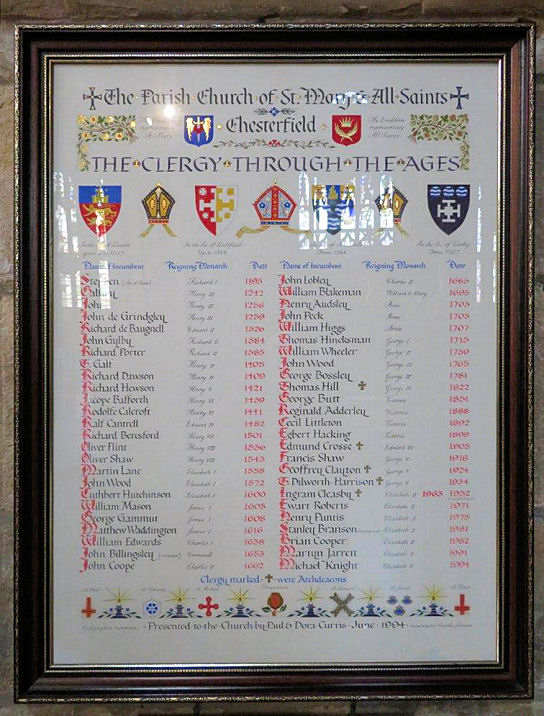 The Parish Church of St. Mary & All Saints
Chesterfield
The Emblem representing All Saints
THE CLERGY THROUGH THE AGES
Name of Incumbent Reigning Monarch Date Name of Incumbent Reigning Monarch Date
Stephen Richard I 1195 John Lobley Charles II 1665
Henry III 1242 William Blakeman William & Mary 1695
John Henry III 1256 Henry Audsley Anne 1703
John de Grindgley Henry III 1259 John Peck Anne 1705
Richard de Baugnell Edward II 1326 William Higgs Anne 1707
John Gylby Richard II 1384 Thomas Hincksman George I 1715
Richard Porter Richard II 1385 William Wheeler George II 1739
T. Galf Henry IV 1405 John Wood George III 1765
Richard Dawson Henry IV 1409 George Bossley George III 1781
Richard Hewson Henry V 1421 Thomas Hill George IV 1822
Jacope Bufforth Henry VI 1439 George Butt Victoria 1851
Rodolfe Calcroft Henry VI 1441 Reginald Adderley Victoria 1888
Ralf Cantrell Edward IV 1482 Cecil Littleton Victoria 1892
Richard Beresford Henry VII 1501 Egbert Hacking Victoria 1899
Oliver Flint Henry VIII 1536 Edmund Crosse Edward VII 1905
Oliver Shaw Henry VIII 1545 Francis Shaw George V 1918
Martin Lane Elizabeth I 1558 Geoffrey Clayton George V 1924
John Wood Elizabeth I 1572 T. Dilworth-Harrison George V 1934
Cuthbert Hutchinson Elizabeth I 1600 Ingram Cleasby Elizabeth II 1963
William Mason James I 1605 Ewart Roberts Elizabeth II 1971
George Gammut James I 1608 Henry Puntis Elizabeth II 1975
Matthew Waddington James I 1616 Stanley Branson Elizabeth II 1981
William Edwards Charles I 1638 Brian Cooper Elizabeth II 1982
John Billingsley Cromwell 1653 Martyn Jarrett Elizabeth II 1991
John Coope Charles II 1662 Michael Knight Elizabeth II 1994
Clergy marked were Archdeacons
Presented to the Church by Paul & Dora Curtis June 1994